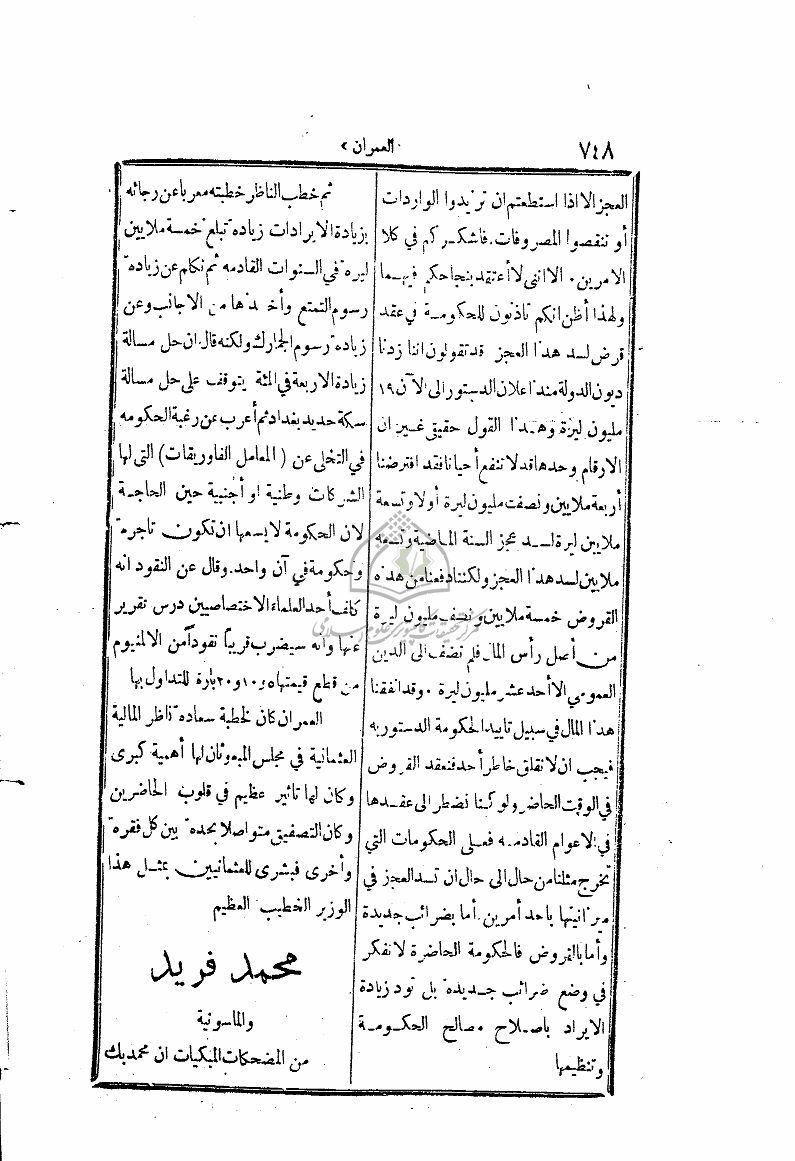 ٧٤٨
العمران »
العجز الا اذا استطعتم ان تزيدوا الواردات
أو تنقصوا المصروفات. فاشكركم في كلا
الامرين. الا انني لا أعتقد بنجاحكم فيهما
ولهذا أظن انكم تاذنون للحكومة في عقد
قرض لسد هذا العجز قد تقولون اننا زدنا
ديون الدولة منذ اعلان الدستور الى الآن ١٩
مليون ليرة وهذا القول حقيقي غير ان
الارقام وحدها قد لا تنفع أحيانا فقد اقترضنا
أربعة ملايين ونصف مليون ليرة أولا وتسعة
ملايين ليرة لسد عجز السنة الماضية وتسعة
ملايين لسد هذا العجز ولكننا دفعنا من هذه
القروض خمسة ملايين ونصف مليون ليرة
من أصل رأس المال فلم تضف الى الدين
العمومي الا أحد عشر مليون ليرة. وقد انفقنا
هذا المال في سبيل تاييد الحكومة الدستوريه
فيجب ان لا نقلق خاطر أحد فنعقد القروض
في الوقت الحاضر ولو كنا نضطر الى عقدها
في الاعوام القادمه فعلى الحكومات التي
تخرج مثلنا من حال الى حال ان تسد العجز في
ميزانيتها باحد أمرين. أما بضرائب جديدة
وأما بالقروض فالحكومة الحاضرة لا نفكر
في وضع ضرائب جديدة بل تود زيادة
الايراد باصلاح مصالح الحكومة
وتنظيمها
ثم خطب الناظر خطبته معربا عن رجائه
بزيادة الايرادات زيادة تبلغ خمسة ملايين
ليرة في السنوات القادمه ثم تكلم عن زيادة
رسوم التمتع وأخذها من الاجانب وعن
زيادة رسوم الجمارك ولكنه قال. ان حل مسالة
زيادة الاربعة في المئة يتوقف على حل مسالة
سكة حديد بغداد ثم أعرب عن رغبة الحكومه
في التخلي عن ( المعامل الفاوريقات ) التي لها
الشركات وطنية او أجنبية حين الحاجة
لان الحكومة لا يسعها ان تكون تاجرة
وحكومة في آن واحد. وقال عن النقود انه
كلف أحد العلماء الاختصاصيين درس تقرير
عنها وانه سيضرب قريبًا نقودًا من الالمنيوم
من قطع قيمتها ٥ و١٠ و٢٠ بارة للتداول بها
العمران كان لخطبة سعاده ناظر المالية
العثمانية في مجلس المبعوثان لها أهمية كبرى
وكان لها تاثير عظيم في قلوب الحاضرين
وكان التصفيق متواصلا بحده بين كل فقره
وأخرى فبشرى للعثمانيين بمثل هذا
الوزير الخطيب العظيم
محمد فريد
والماسونية
من المضحكات المبكيات ان محمد بك